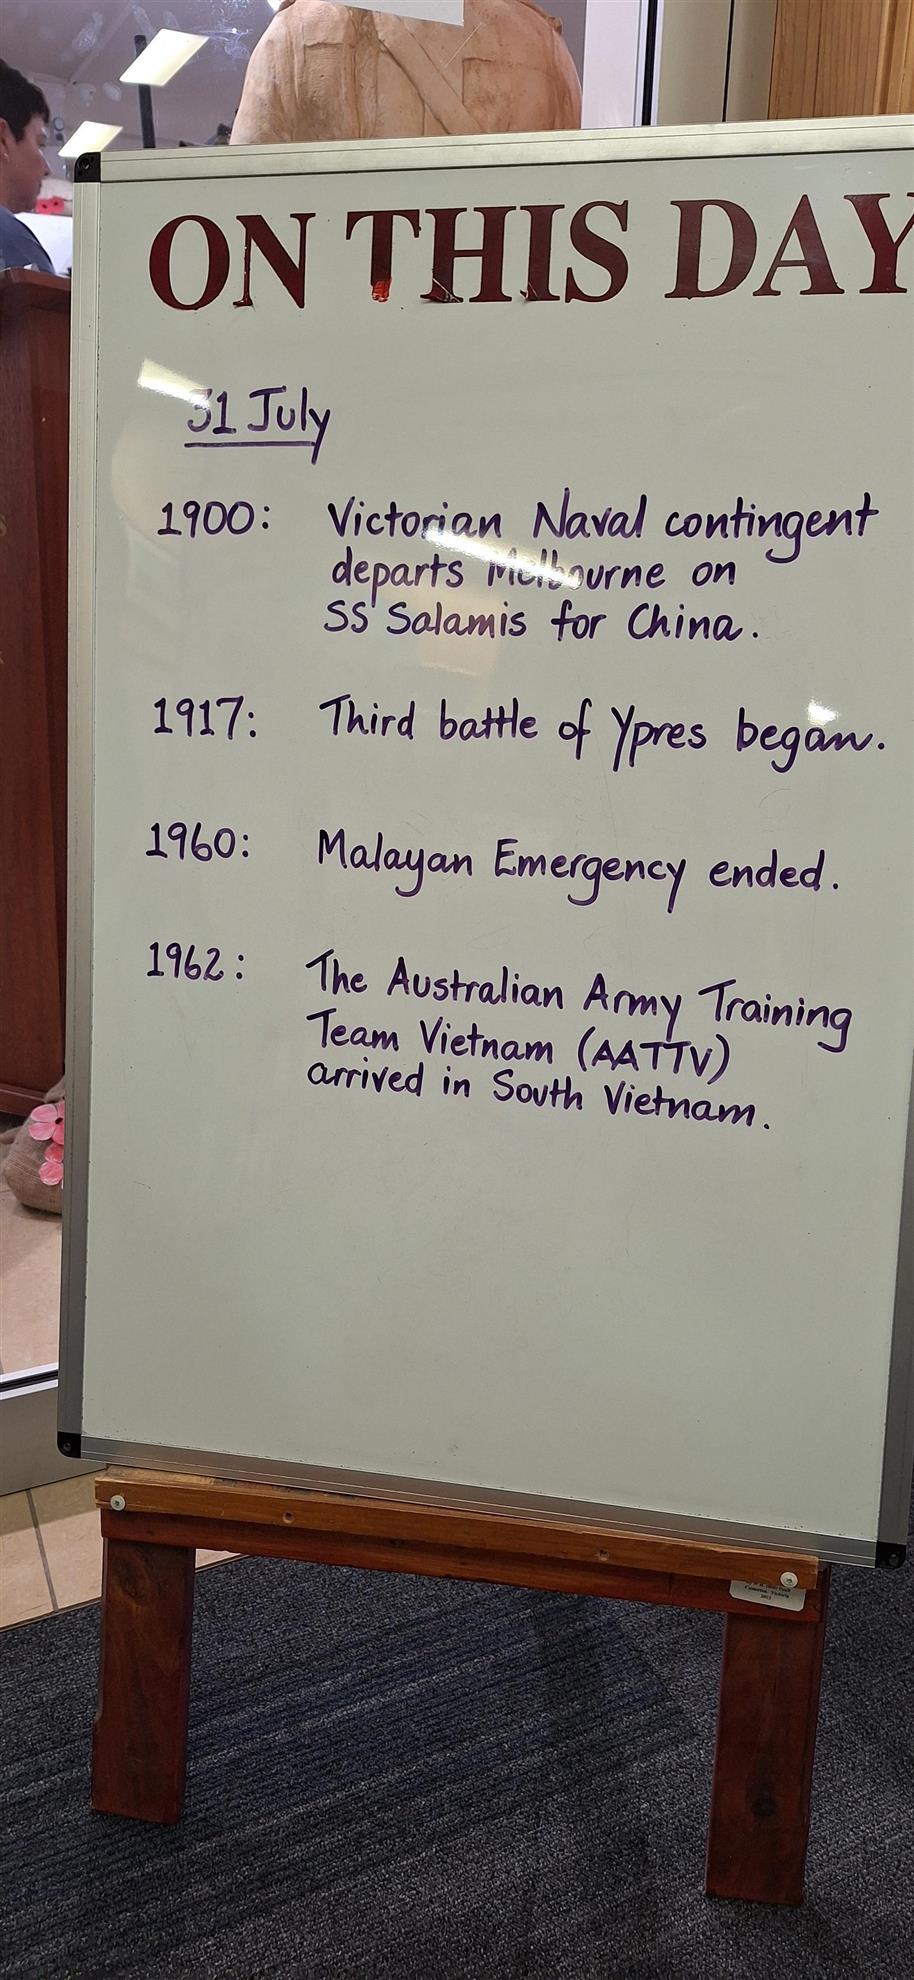 ON THIS DAY
31 July
1900: Victorian Naval contingent
departs Melbourne on
SS Salamis for China.
1917: Third battle of Ypres began.
1960: Malayan Emergency ended.
1962: The Australian Army Training
Team Vietnam (AATTV)
arrived in South Vietnam.